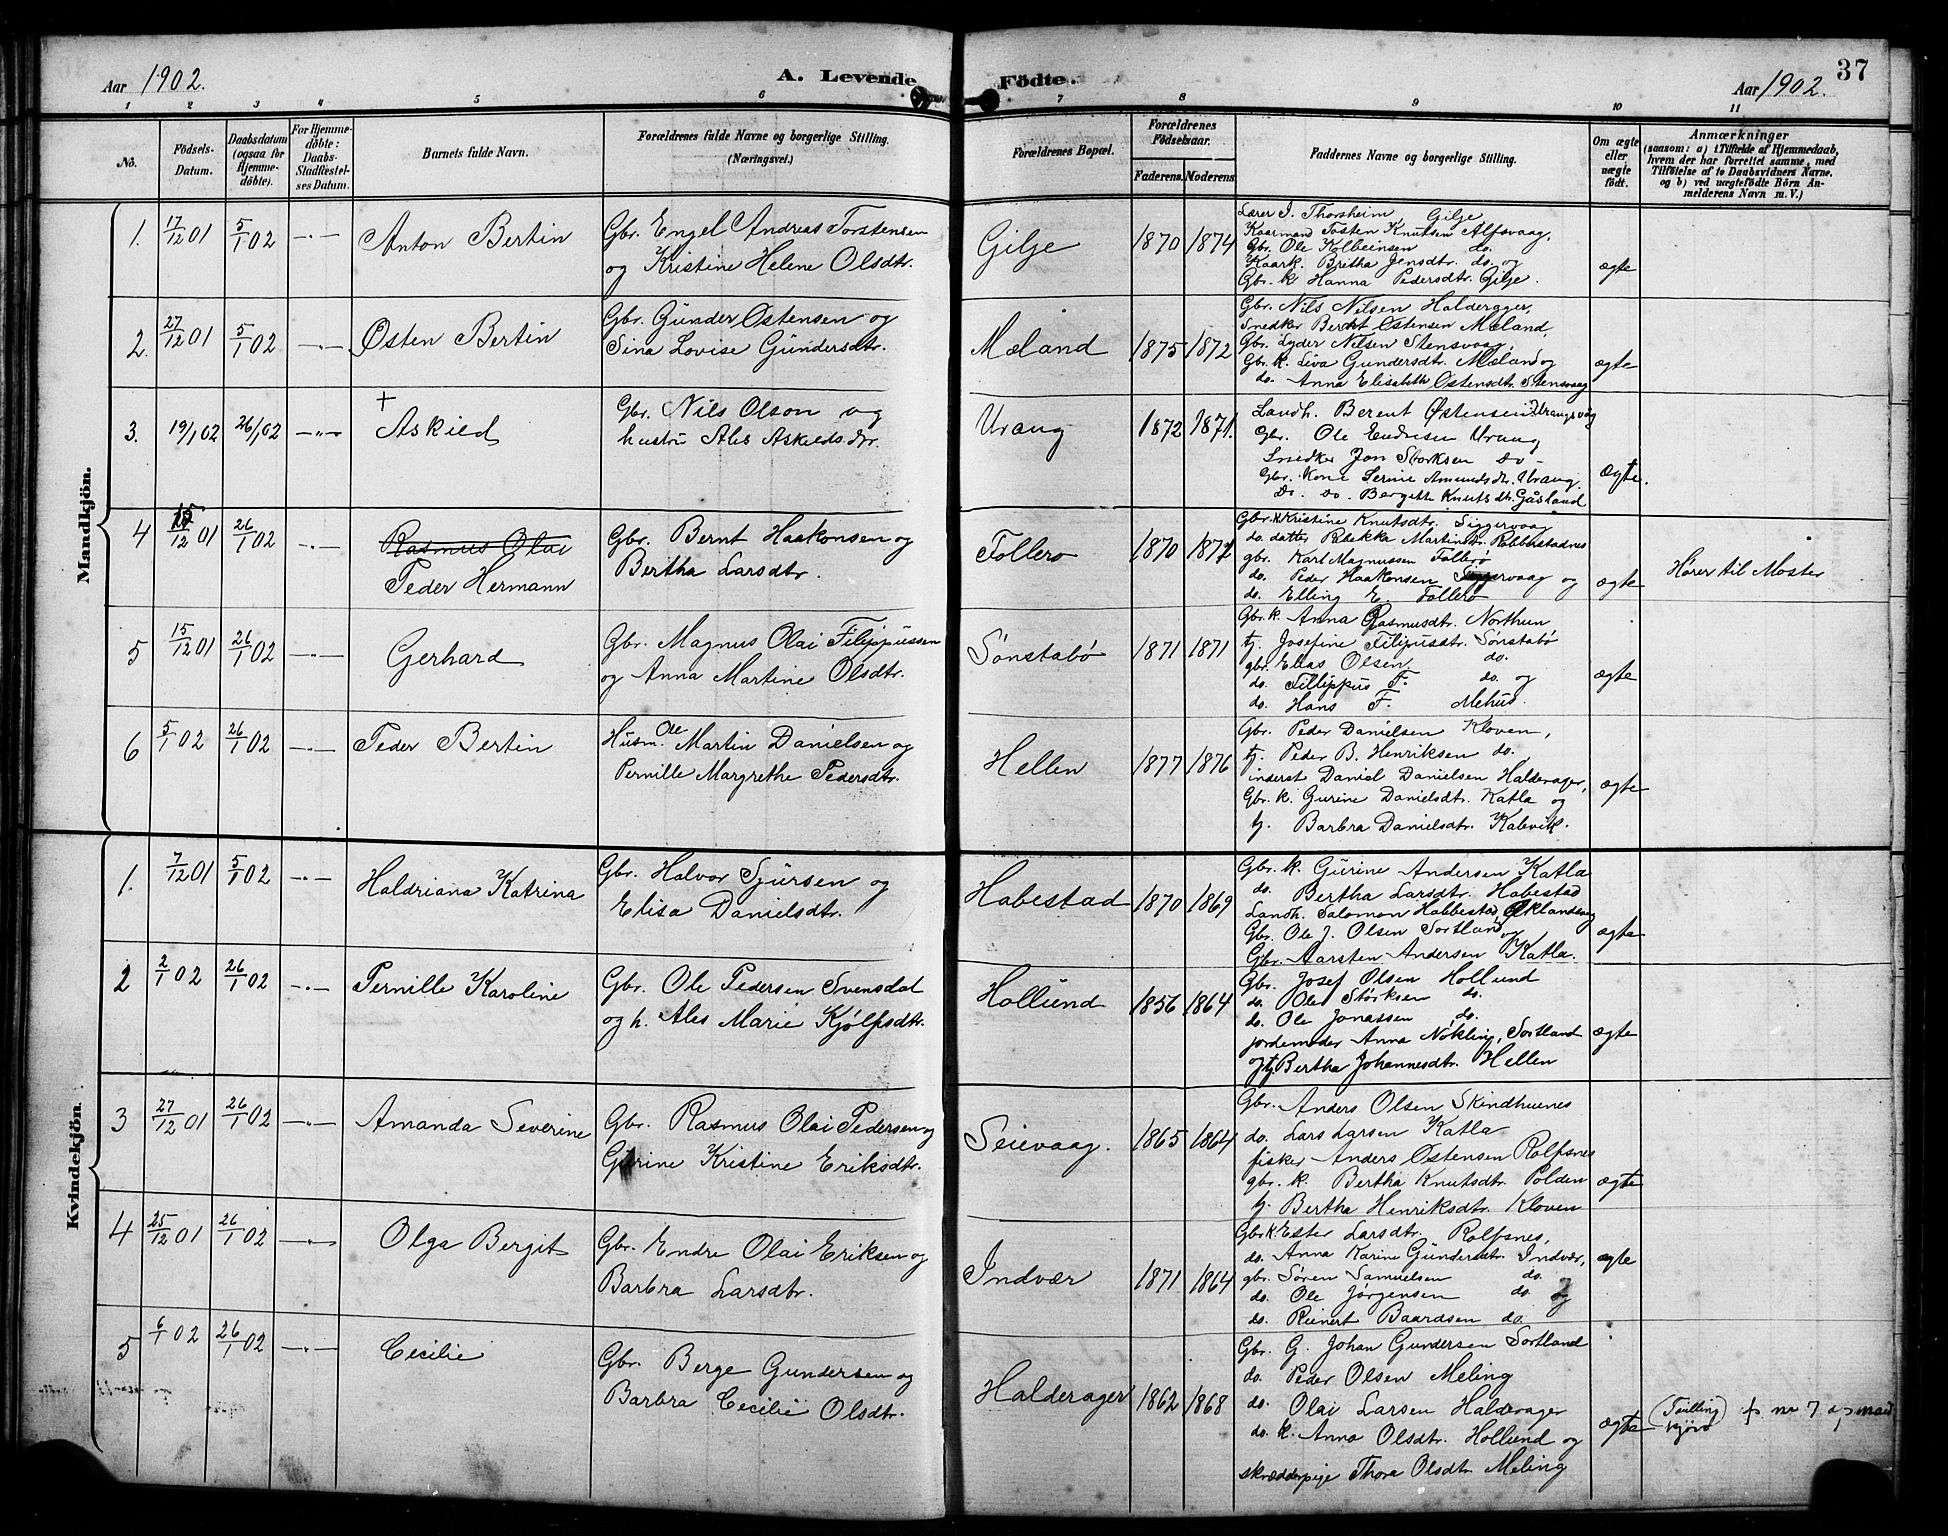 Aar 1902.
A. Levende Födte.
Aar 1902.
37
1 2 3 4 5 6 7 8 9 10 11
No.
Födsels-
Datum.
Daabsdatum
(ogsaa for
Hjemme-
döbte).
For Hjemme-
döbte:
Daabs-
Stadfæstel-
ses Datum.
Barnets fulde Navn.
Forældrenes fulde Navne og borgerlige Stilling.
(Næringsvei.)
Forældrenes Bopæl.
Forældrenes
Födselsaar.
Faderens. Moderens.
Faddernes Navne og borgerlige Stilling.
Om ægte
eller
uægte
födt.
Anmærkninger
(saasom: a) i Tilfælde af Hjemmedaab,
hvem der har forrettet samme, med
Tilföielse af to Daabsvidners Navne.
og b) ved uægtefödte Börn An-
melderens Navn m. V.)
Mandkjön.
1. 17/12 01 5/1 02 -"- Anton Bertin
Gbr. Engel Andreas Torstensen
og Kristine Helene Olsdtr.
Gilje 1870 1874
Lærer I. Thorsheim, Gilje
Kaarmand Tosten Knutsen Alfsvaag,
Gbr. Ole Kolbeinsen do.
Kaark. Britha Jensdtr. do. og
Gbr. k Hanna Pedersdtr. Gilje.
ægte
2. 27/12 01 5/1 02 -"- Østen Bertin
Gbr. Gunder Østensen og
Sina Lovise Gundersdtr.
Mæland 1875 1872
Gbr. Nils Nilsen Halderager,
Snedker Bernt Østensen Mæland,
Gbr. Lyder Nilsen Stensvaag,
Gbr. k. Siva Gundersdtr. Mæland og
do. Anna Elisabeth Østensdtr. Stensvaag
ægte
3. 19/1 02 26/1 02 -"- + Askied
Gbr. Nils Olson og
hustru Ales Askieds.dtr.
Urang 1872 1871.
Landh. Berent Østensen Urangsvåg
Gbr. Ole Endresen Urang
Snedker Jon Storksen do -
Gbr. Kone Serine Amundsdtr. Urang.
Do. do. Bergitte Knutsdtr. Gåsland
ægte.
4 15/12 01 26/1 02 -"- Rasmus Olai
Peder Hermann
Gbr. Bernt Haakonsen og
Bertha Larsdtr.
Follerø 1870 1872
Gbr. k Kristine Knutsdtr. Siggervaag
do. datter Rebekka Martinsdtr. Robberstadnes
gbr. Karl Magnussen Follerø
do. Peder Haakonsen Siggervaag og
do. Elling E. Follerø
ægte
Hører til Moster
5 15/12 01 26/1 02 -"- Gerhard
Gbr. Magnus Olai Filippussen
og Anna Martine Olsdtr.
Sønstabø 1871 1871
Gbr. k. Anna Rasmusdtr. Northun
tj. Josefine Filipusdtr. Sønstabø
gbr. Elias Olsen do.
do. Fillippus F. do. og
do. Hans F. Mehus.
ægte
6 5/1 02 26/1 02 -"- Peder Bertin
Husm. Ole Martin Danielsen og
Pernille Margrethe Pedersdtr.
Hellen 1877 1876
Gbr. Peder Danielsen Kloven,
tj. Peder B. Henriksen do.
inderst Daniel Danielsen Halderager,
Gbr. k. Gurine Danielsdtr. Katla og
tj. Barbra Danielsdtr. Kalevik.
ægte
Kvindekjön.
1. 7/12 01 5/1 02 -"- Haldriana Katrina
Gbr. Halvor Sjursen og
Elisa Danielsdtr.
Habestad 1870 1869
Gbr. k. Gurine Andersen Katla
do. Bertha Larsdtr. Habestad
Landh. Salomon Habbestad, Øklandsvåg
Gbr. Ole J. Olsen Sortland og
Gbr. Aarsten Andersen Katla.
ægte
2 2/1 02 26/1 02 -"- Pernille Karoline
Gbr. Ole Pedersen Svensdal
og h. Ales Marie Kjølfsdtr.
Hollund 1856 1864
Gbr. Josef Olsen Hollund
do. Ole Størksen do.
do. Ole Jonassen do.
jordemoder Anna Nøkling, Sortland
og tj. Bertha Johannesdtr. Hellen
ægte
3 27/12 01 26/1 02 -"- Amanda Severine
Gbr. Rasmus Olai Pedersen og
Gurine Kristine Eriksdtr.
Seievaag. 1865 1864
Gbr. Anders Olsen Skindhuenes
do. Lars Larsen Katla
fisker Anders Østensen Rolfsnes
gbr. k. Bertha Knutsdtr. Polden
tj. Bertha Henriksdtr. Kloven
ægte
4 25/12 01 26/1 02 -"- Olga Bergit
Gbr. Endre Olai Eriksen og
Barbra Larsdtr.
Indvær 1871 1864
Gbr. k. Ester Larsdtr. Rolfsnes,
do. Anna Karine Gundersdtr. Indvær,
gbr. Søren Samuelsen do.
do. Ole Jørgensen do. og
do. Reinert Baardsen do.
ægte
5 6/1 02 26/1 02 -"- Cecilie
Gbr. Berge Gundersen og
Barbra Cecilie Olsdtr.
Halderager 1862 1868
Gbr. G. Johan Gundersen Sortland
do. Peder Olsen Meling
do. Olai Larsen Halderager
do. k. Anna Olsdtr. Hollund og
skrædderpige Thora Olsdtr. Meling
ægte
(Tvilling) nr 7